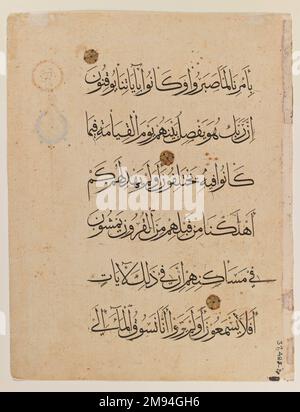 بأمرنا لما صبروا وكانوا بآياتنا يوقنون
إن ربك هو يفصل بينهم يوم القيامة فيما
كانوا فيه يختلفون أولم يهد لهم كم
أهلكنا من قبلهم من القرون يمشون
في مساكنهم إن في ذلك لآيات
أفلا يسمعون أولم يروا أنا نسوق الماء إلى
alamy - 2M94GH6